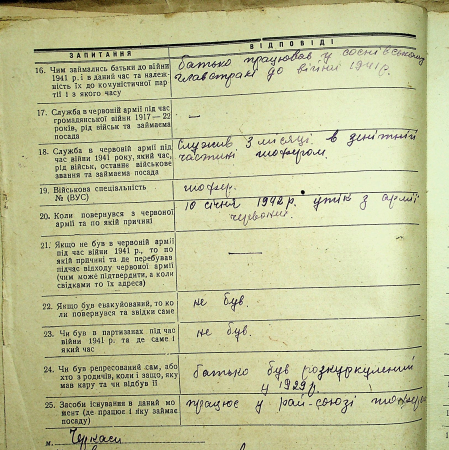 ЗАПИТАННЯ
ВІДПОВІДІ
16. Чим займались батьки до війни
1941 р. і в даний час та належ-
ність їх до комуністичної пар-
тії і з якого часу
батько працював у соснівському
главтракі до війни 1941 р.
17. Служба в червоній армії під час
громадянської війни 1917—22
років, рід військ та займаєма
посада
—
18. Служба в червоній армії під
час війни 1941 року, який час,
рід військ, останнє військове
звання та займаєма посада
Служив 3 місяці в зенітній
частині шофером.
19. Військова спеціальність
№ (ВУС)
шофер.
20. Коли повернувся з червоної
армії та по якій причині
10 січня 1942 р. утік з армії
червоної.
21. Якщо не був в червоній армії
під час війни 1941 р., то по
якій причині та де перебував
підчас відходу червоної армії
(чим може підтвердити, а коли
свідками то їх адреса)
—
22. Якщо був евакуйований, то ко-
ли повернувся та звідки саме
не був.
23. Чи був в партизанах під час
війни 1941 р. та де саме і
який час
не був.
24. Чи був репресований сам, або
хто з родичів, коли і защо, яку
мав кару та чи відбув її
батько був розкуркулений
у 1929 р.
25. Засоби існування в даний мо-
мент (де працює і яку займає
посаду)
працює у рай-союзі шофером
м. Черкаси